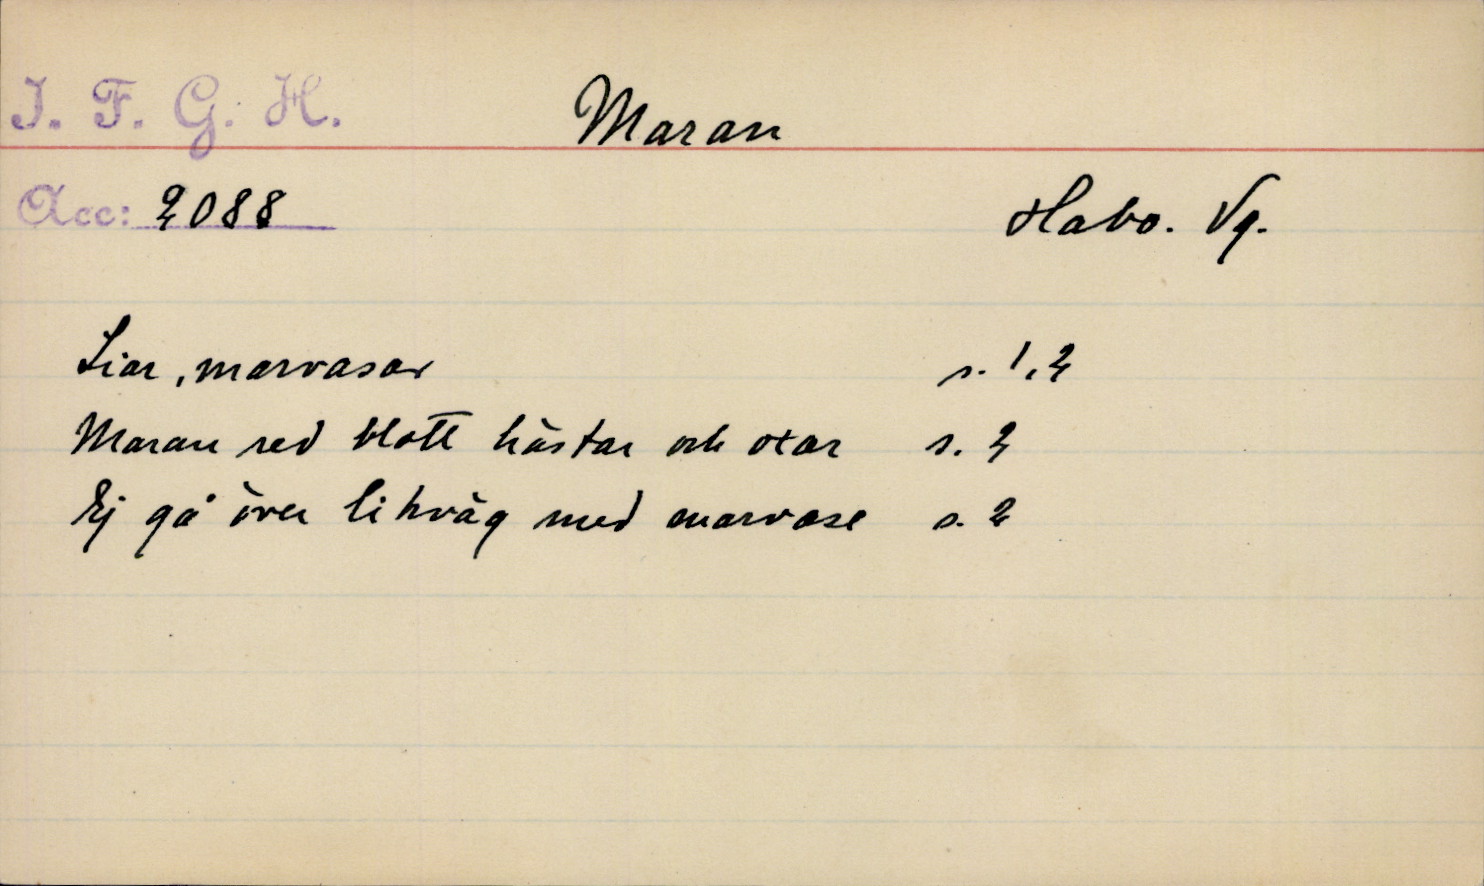 I. F. G. H.
Maran
Acc: 2088
Habo. Vg.
Liar, marvasar s. 1, 2
Maran red blott hästar och oxar s. 2
Ej gå över likväg med marvase s. 2